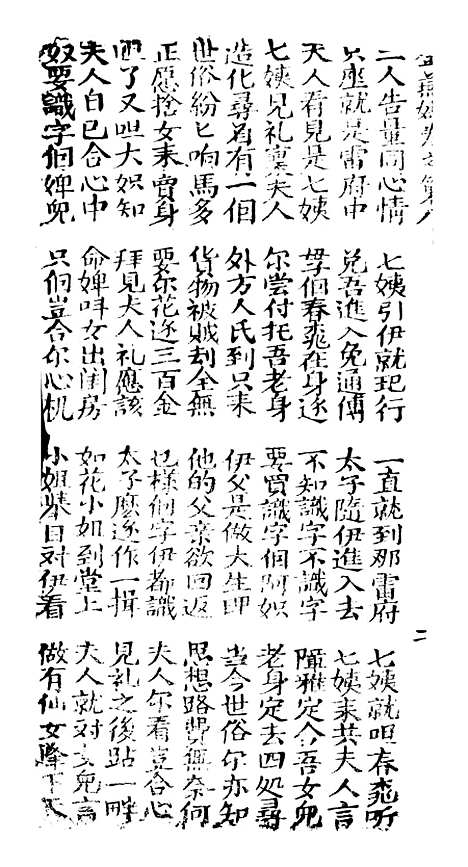 二人告量同心情
七姨引伊就起行
一直就到那雷府
七姨就呾春桃听
只座就是雷府中
免吾進入免通傳
太子隨伊進入去
七姨来共夫人言
夫人看見是七姨
個春桃在身逐
不知識字不識字
雅定人合吾女兒
七姨見礼禀夫人
尔嘗付托吾老身
要買識字個阿娘
老身定去四処尋
造化尋着有一個
外方人氏到只来
伊父是做大生理
当今世俗尔亦知
世俗紛匕响馬多
貨物被贼刦全無
他的父亲欲回返
思想路費無奈何
正應捨女来賣身
要尔花逐三百金
乜樣個字伊都識
夫人尔看豈合心
呾了又呾大娘知
拜見夫人礼應該
太子麽逐作一揖
見礼之後跕一畔
夫人自己合心中
命婢呌女出閨房
如花小姐到堂上
夫人就对女兒言
奴要識字個婢兒
只個豈合尔心机
小姐舉目对伊看
做有仙女降下天
二